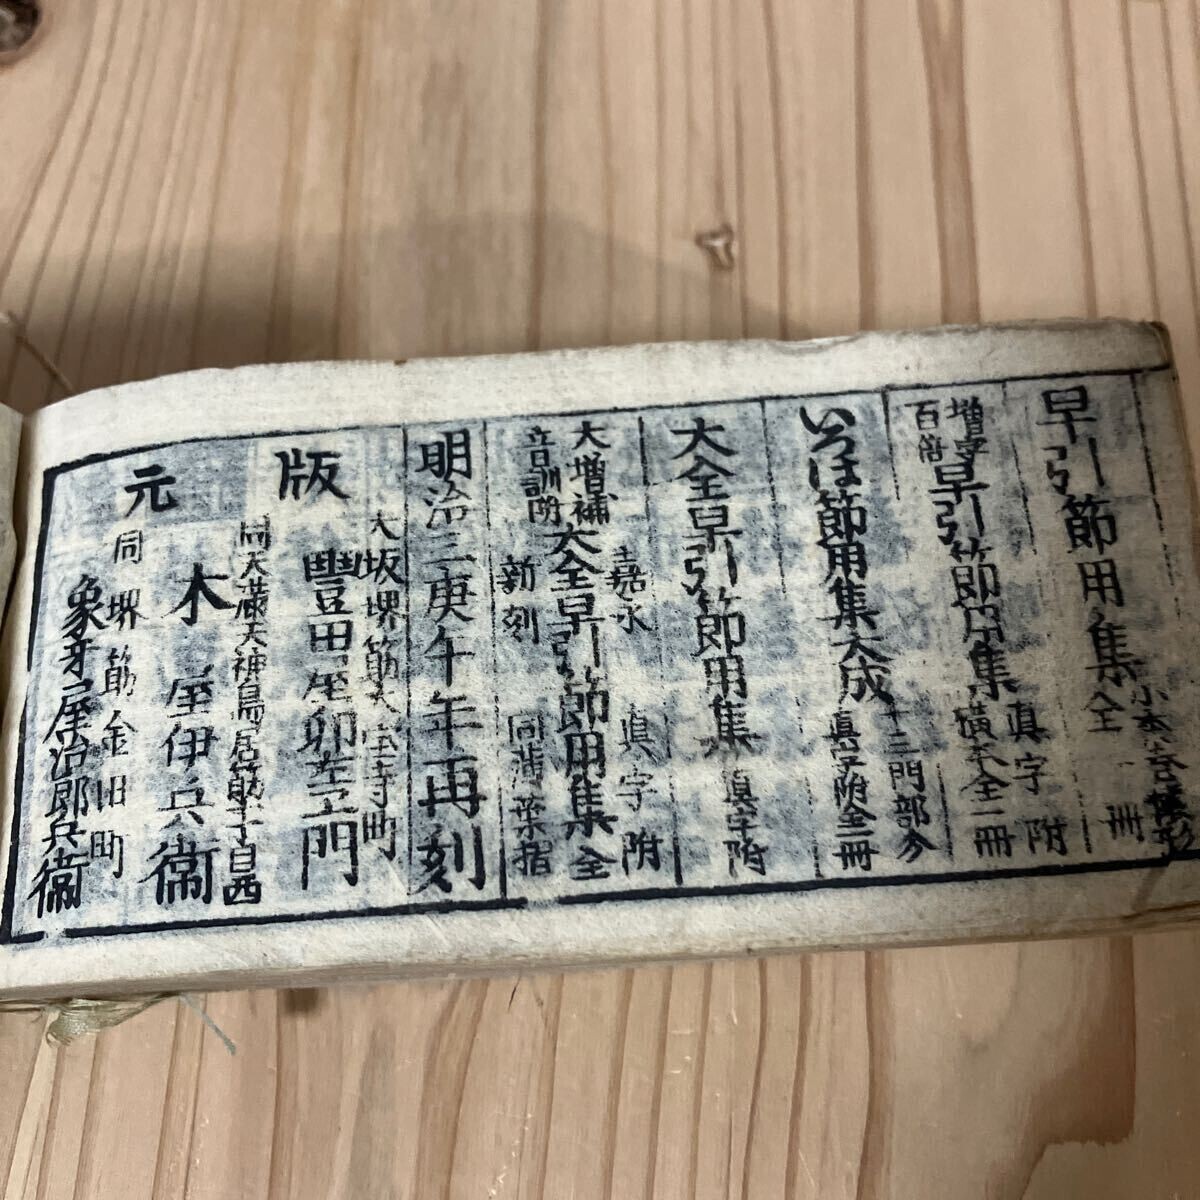 早引節用集全
小本
冊
増字
百倍
早引節用集
真字附
横本全一冊
いろは節用集大成
十二門部分
真字附全一冊
大全早引節用集
真字附
大増補
音訓附
大全早引節用集全
嘉永
新刻
真字附
同
明治三庚午年再刻
版元
大坂堺筋大宝寺町
豊田屋卯左エ門
同天満天神鳥居筋丁目西
木屋伊兵衛
同堺筋金田町
象牙屋治郎兵衛